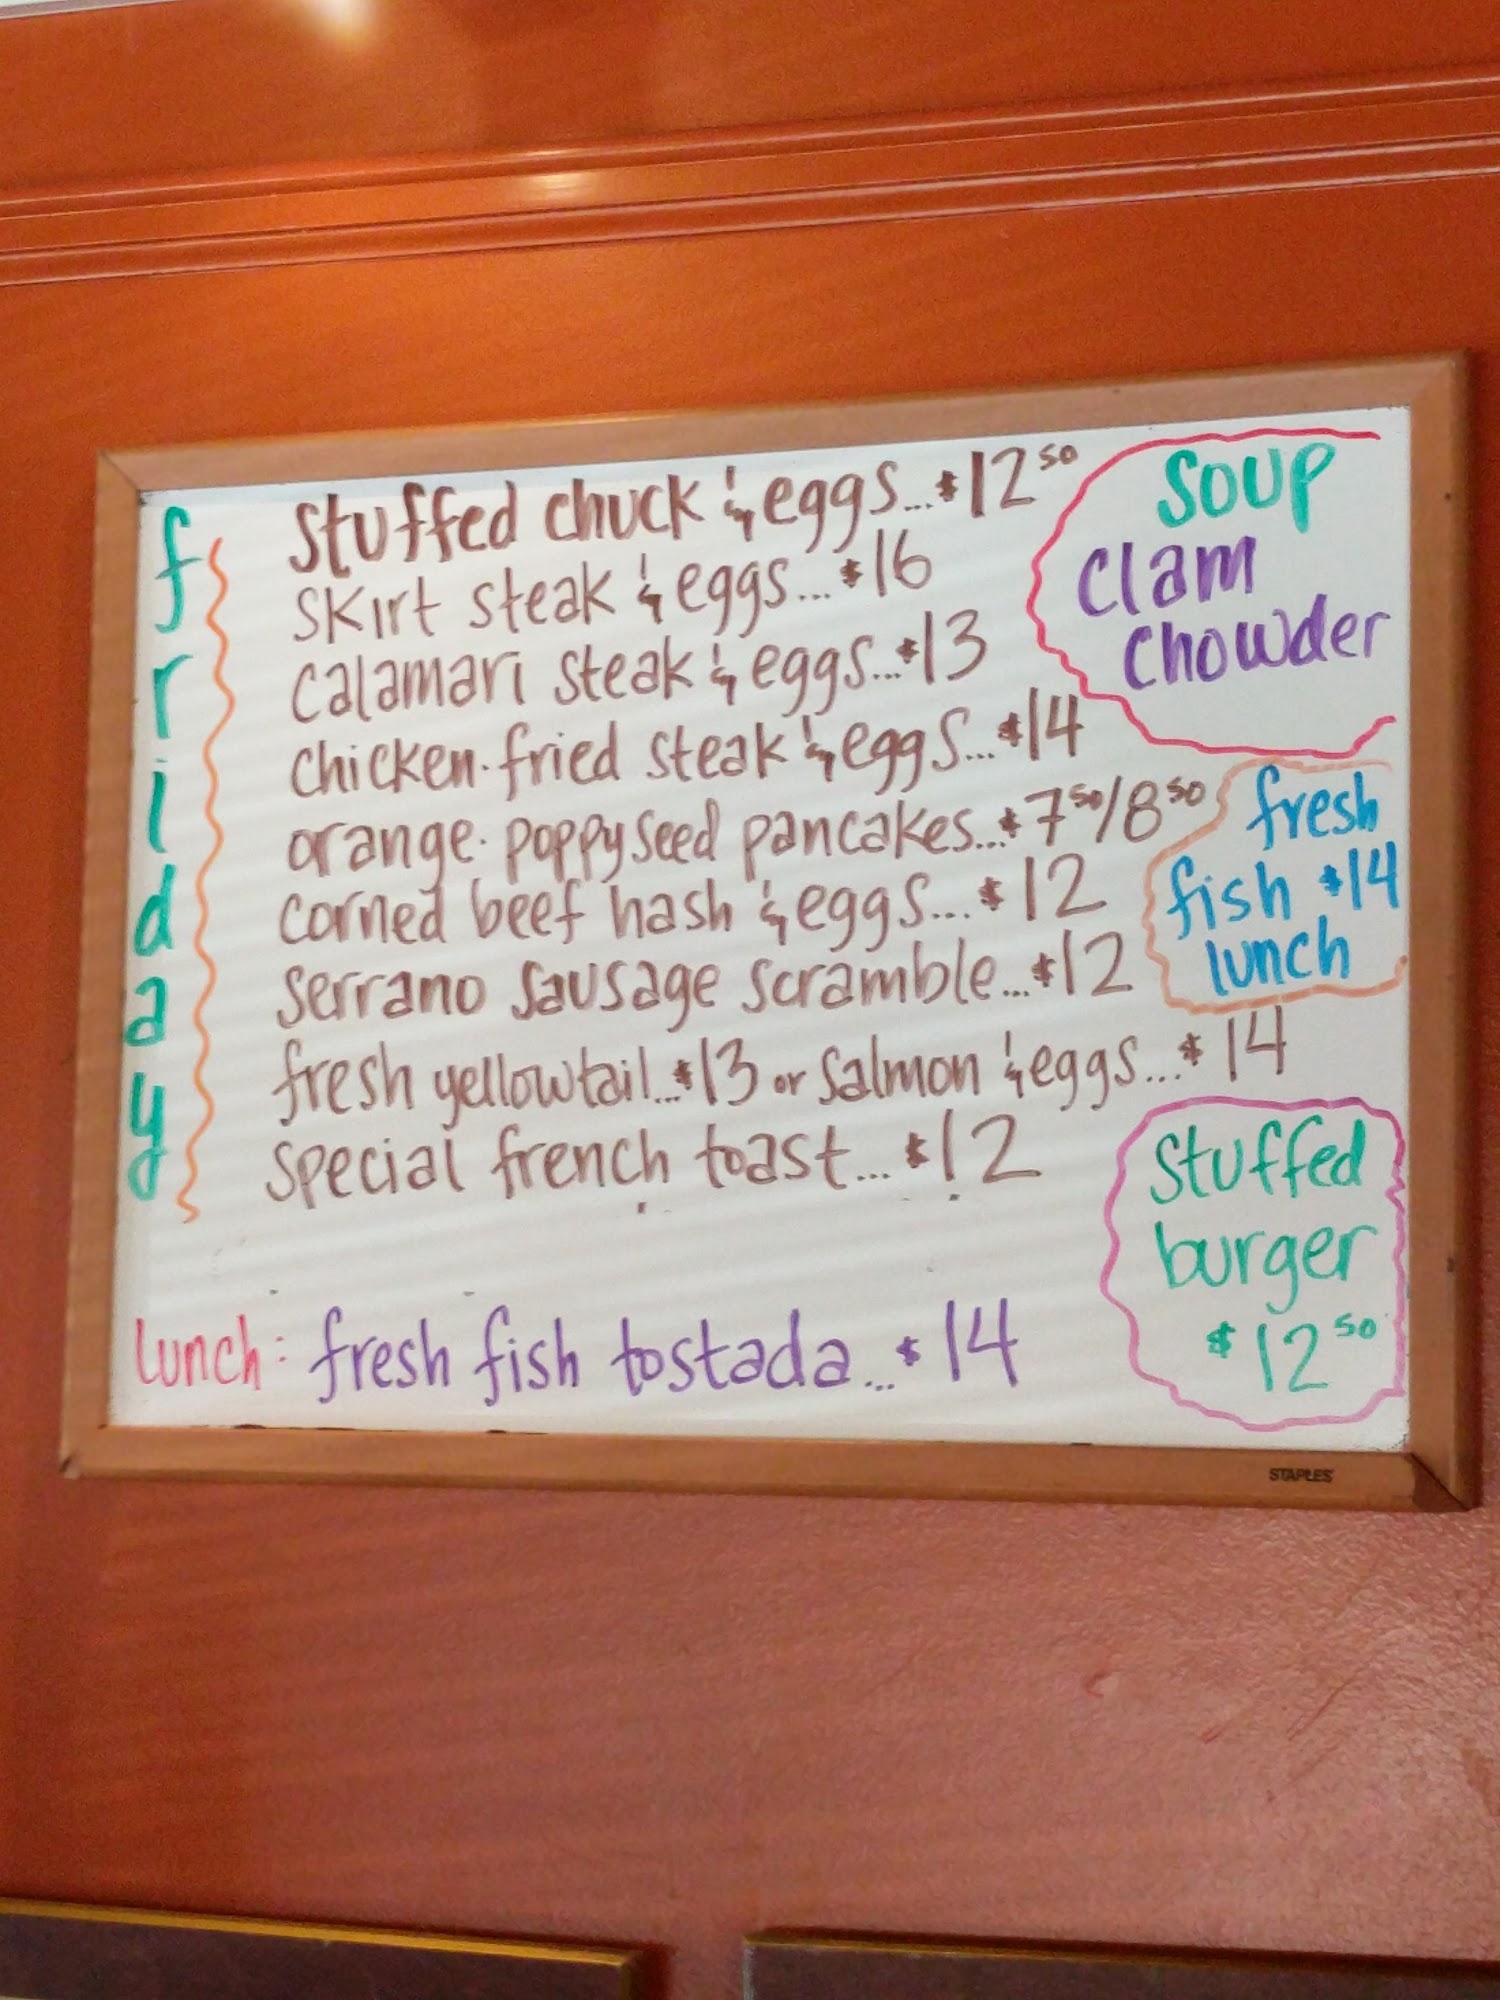 friday
stuffed chuck & eggs...$12⁵⁰
skirt steak & eggs...$16
calamari steak & eggs...$13
chicken-fried steak & eggs...$14
orange-poppyseed pancakes...$7⁵⁰/8⁵⁰
corned beef hash & eggs...$12
serrano sausage scramble...$12
fresh yellowtail...$13 or salmon & eggs...$14
special french toast...$12
lunch: fresh fish tostada...$14
SOUP
clam
chowder
fresh
fish $14
lunch
stuffed
burger
$12⁵⁰
STAPLES